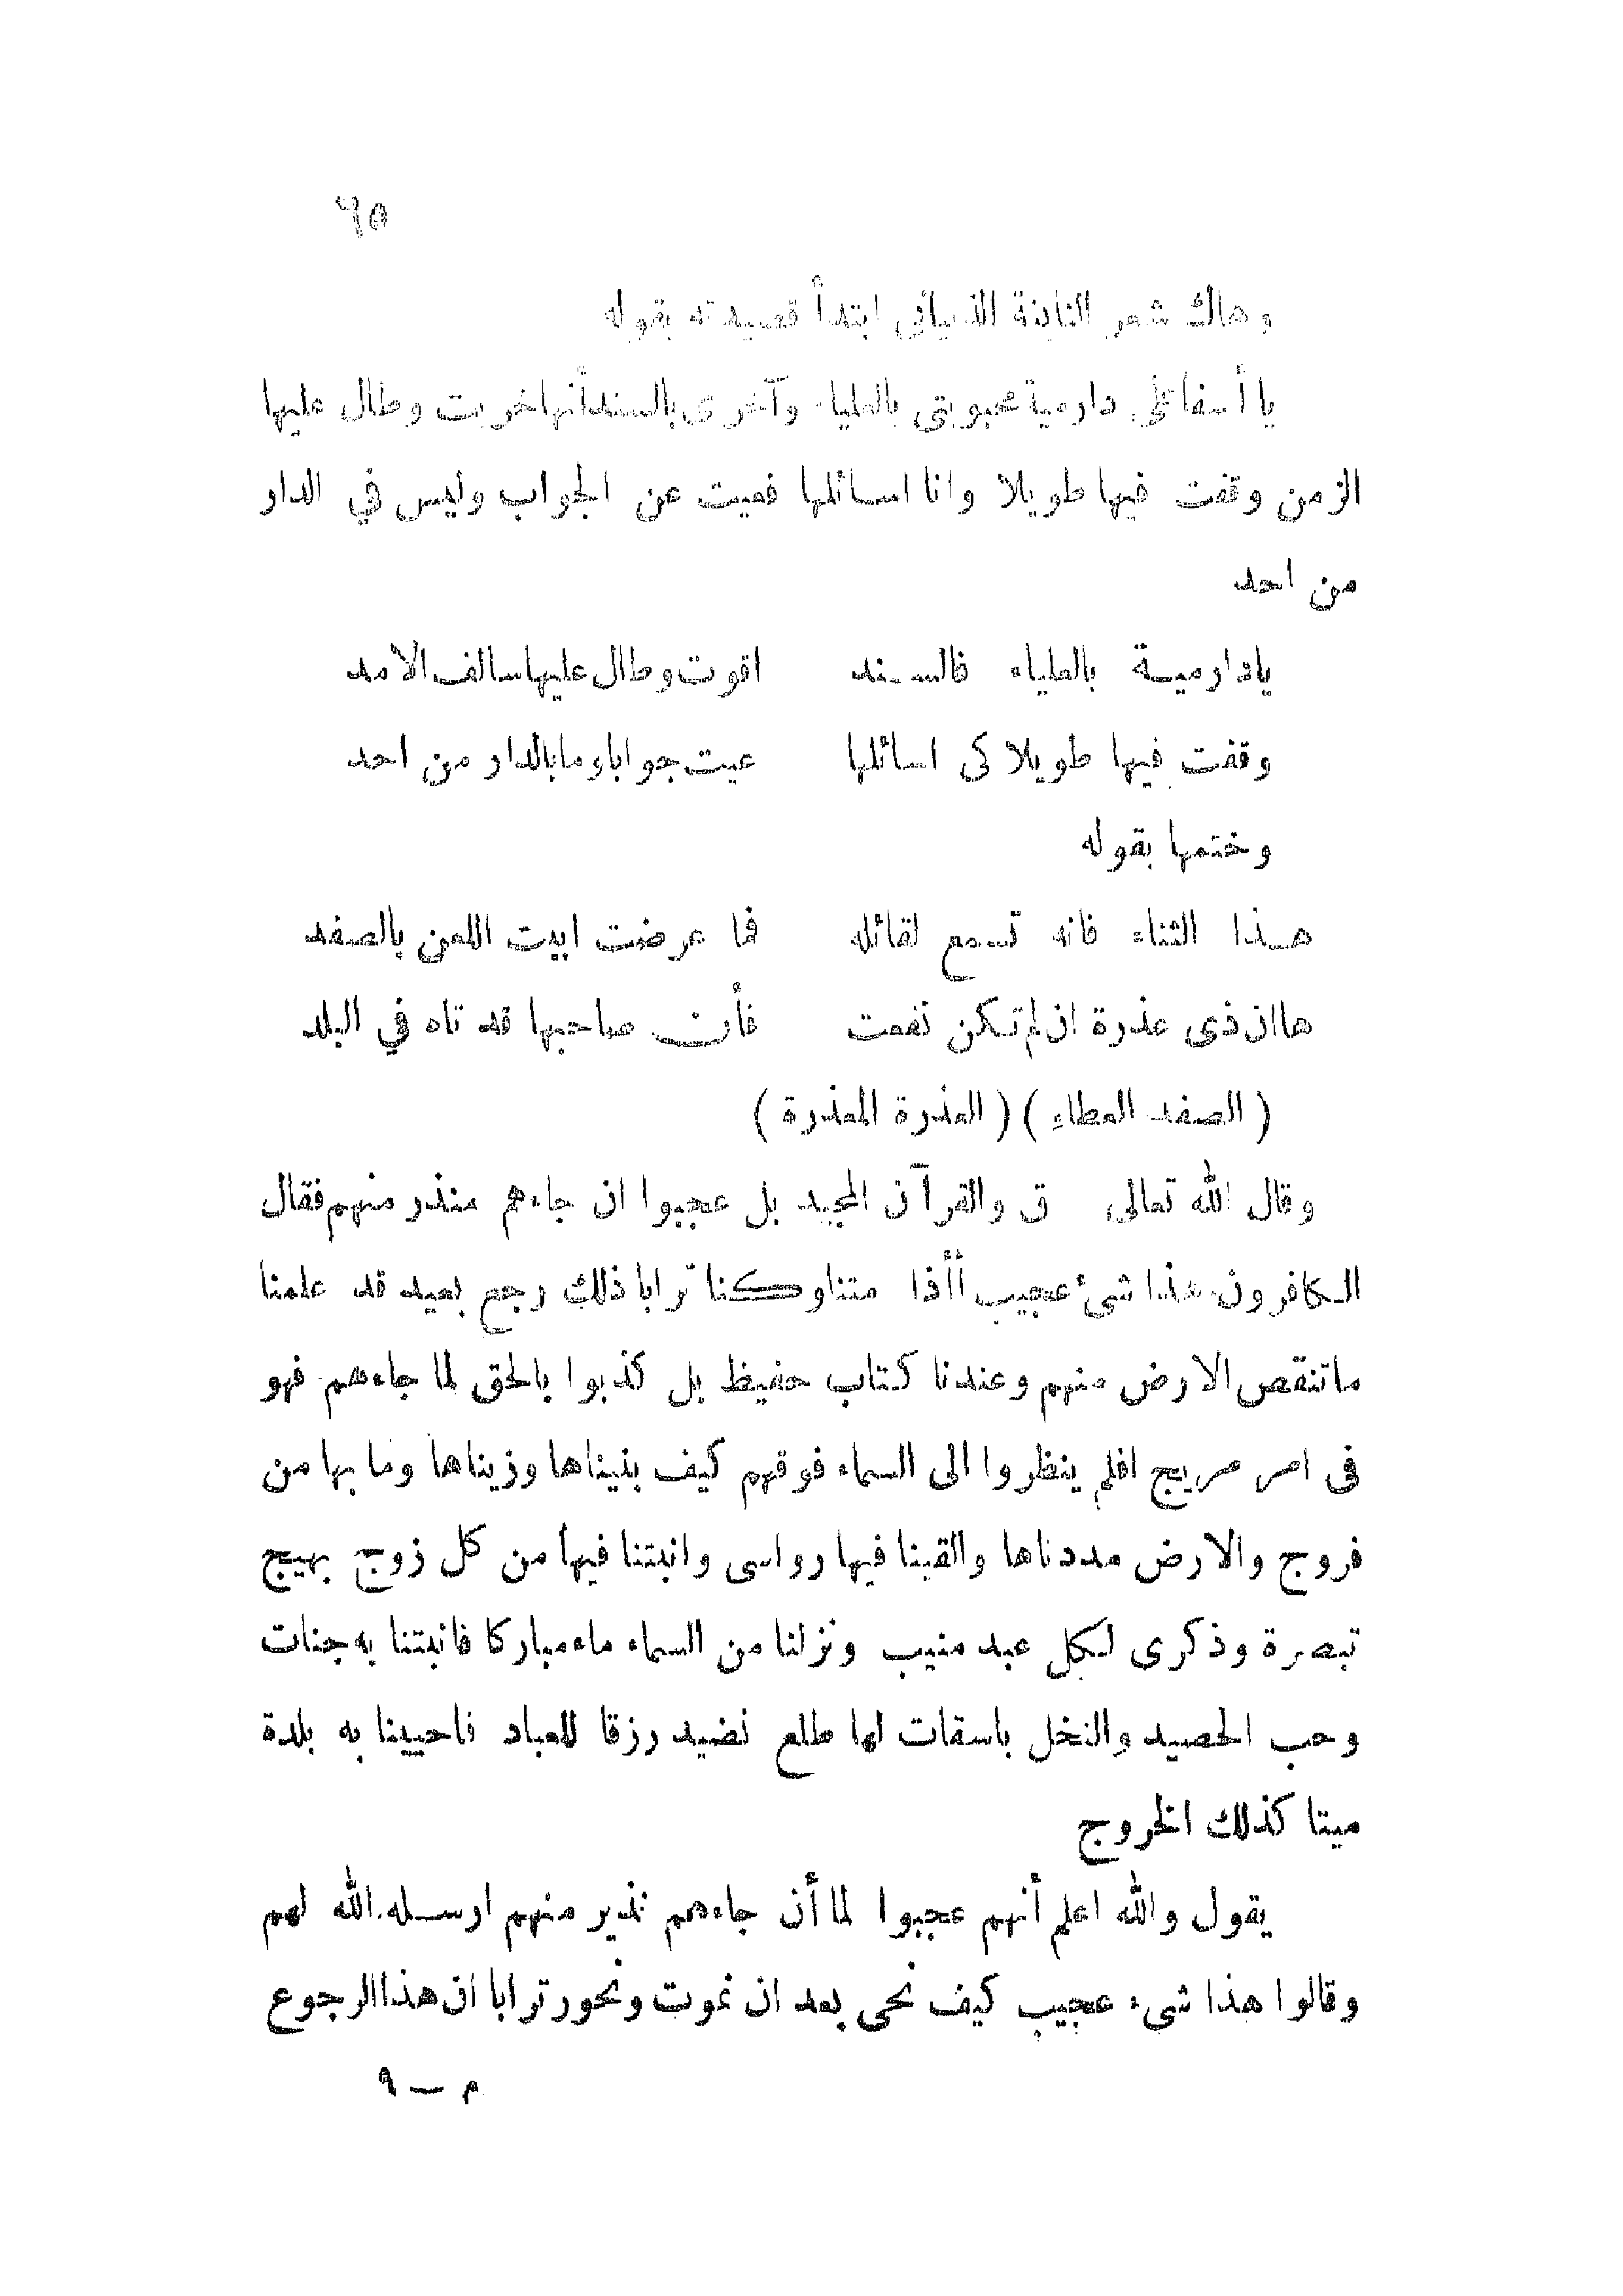 ٦٥
وهاك شعر النابغة الذبيانى ابتدأ قصيدته بقوله
يا أسفا على دارمية محبوبتى بالعلياء وآخرى بالسند أنها خربت وطال عليها
الزمن وقفت فيها طويلا وانا اسائلها فعيت عن الجواب وليس في الدار
من احد
يادارمية بالعلياء فالسند اقوت وطال عليها سالف الامد
وقفت فيها طويلا كى اسائلها عيت جوابا وما بالدار من احد
وختمها بقوله
هذا الثناء فانه تسمع لقائله فما عرضت ابيت اللعن بالصفد
ها ان ذى عذرة ان لم تكن نفعت فأن صاحبها قد تاه في البلد
( الصفد العطاء ) ( العذرة المعذرة )
وقال الله تعالى ق والقرآن المجيد بل عجبوا ان جاءهم منذر منهم فقال
الكافرون هذا شئ عجيب أأذا متنا وكنا ترابا ذلك رجع بعيد قد علمنا
ماتنقص الارض منهم وعندنا كتاب حفيظ بل كذبوا بالحق لما جاءهم فهو
فى امر مريج افلم ينظروا الى السماء فوقهم كيف بنيناها وزيناها وما بها من
فروج والارض مددناها والقينا فيها رواسى وانبتنا فيها من كل زوج بهيج
تبصرة وذكرى لكل عبد منيب ونزلنا من السماء ماء مباركا فانبتنا به جنات
وحب الحصيد والنخل باسقات لها طلع نضيد رزقا للعباد فاحيينا به بلدة
ميتا كذلك الخروج
يقول والله اعلم أنهم عجبوا لما أن جاءهم نذير منهم ارسله الله لهم
وقالوا هذا شىء عجيب كيف نحى بعد ان نموت ونحور ترابا ان هذا الرجوع
م — ٩